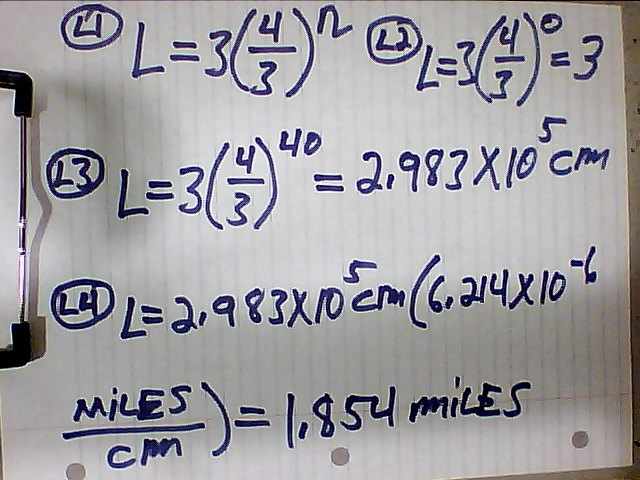 L1 L = 3(4/3)^n L2 L = 3(4/3)^0 = 3
L3 L = 3(4/3)^40 = 2.983 X 10^5 cm
L4 L = 2.983 X 10^5 cm (6.214 X 10^-6
MILES/cm) = 1.854 miLES